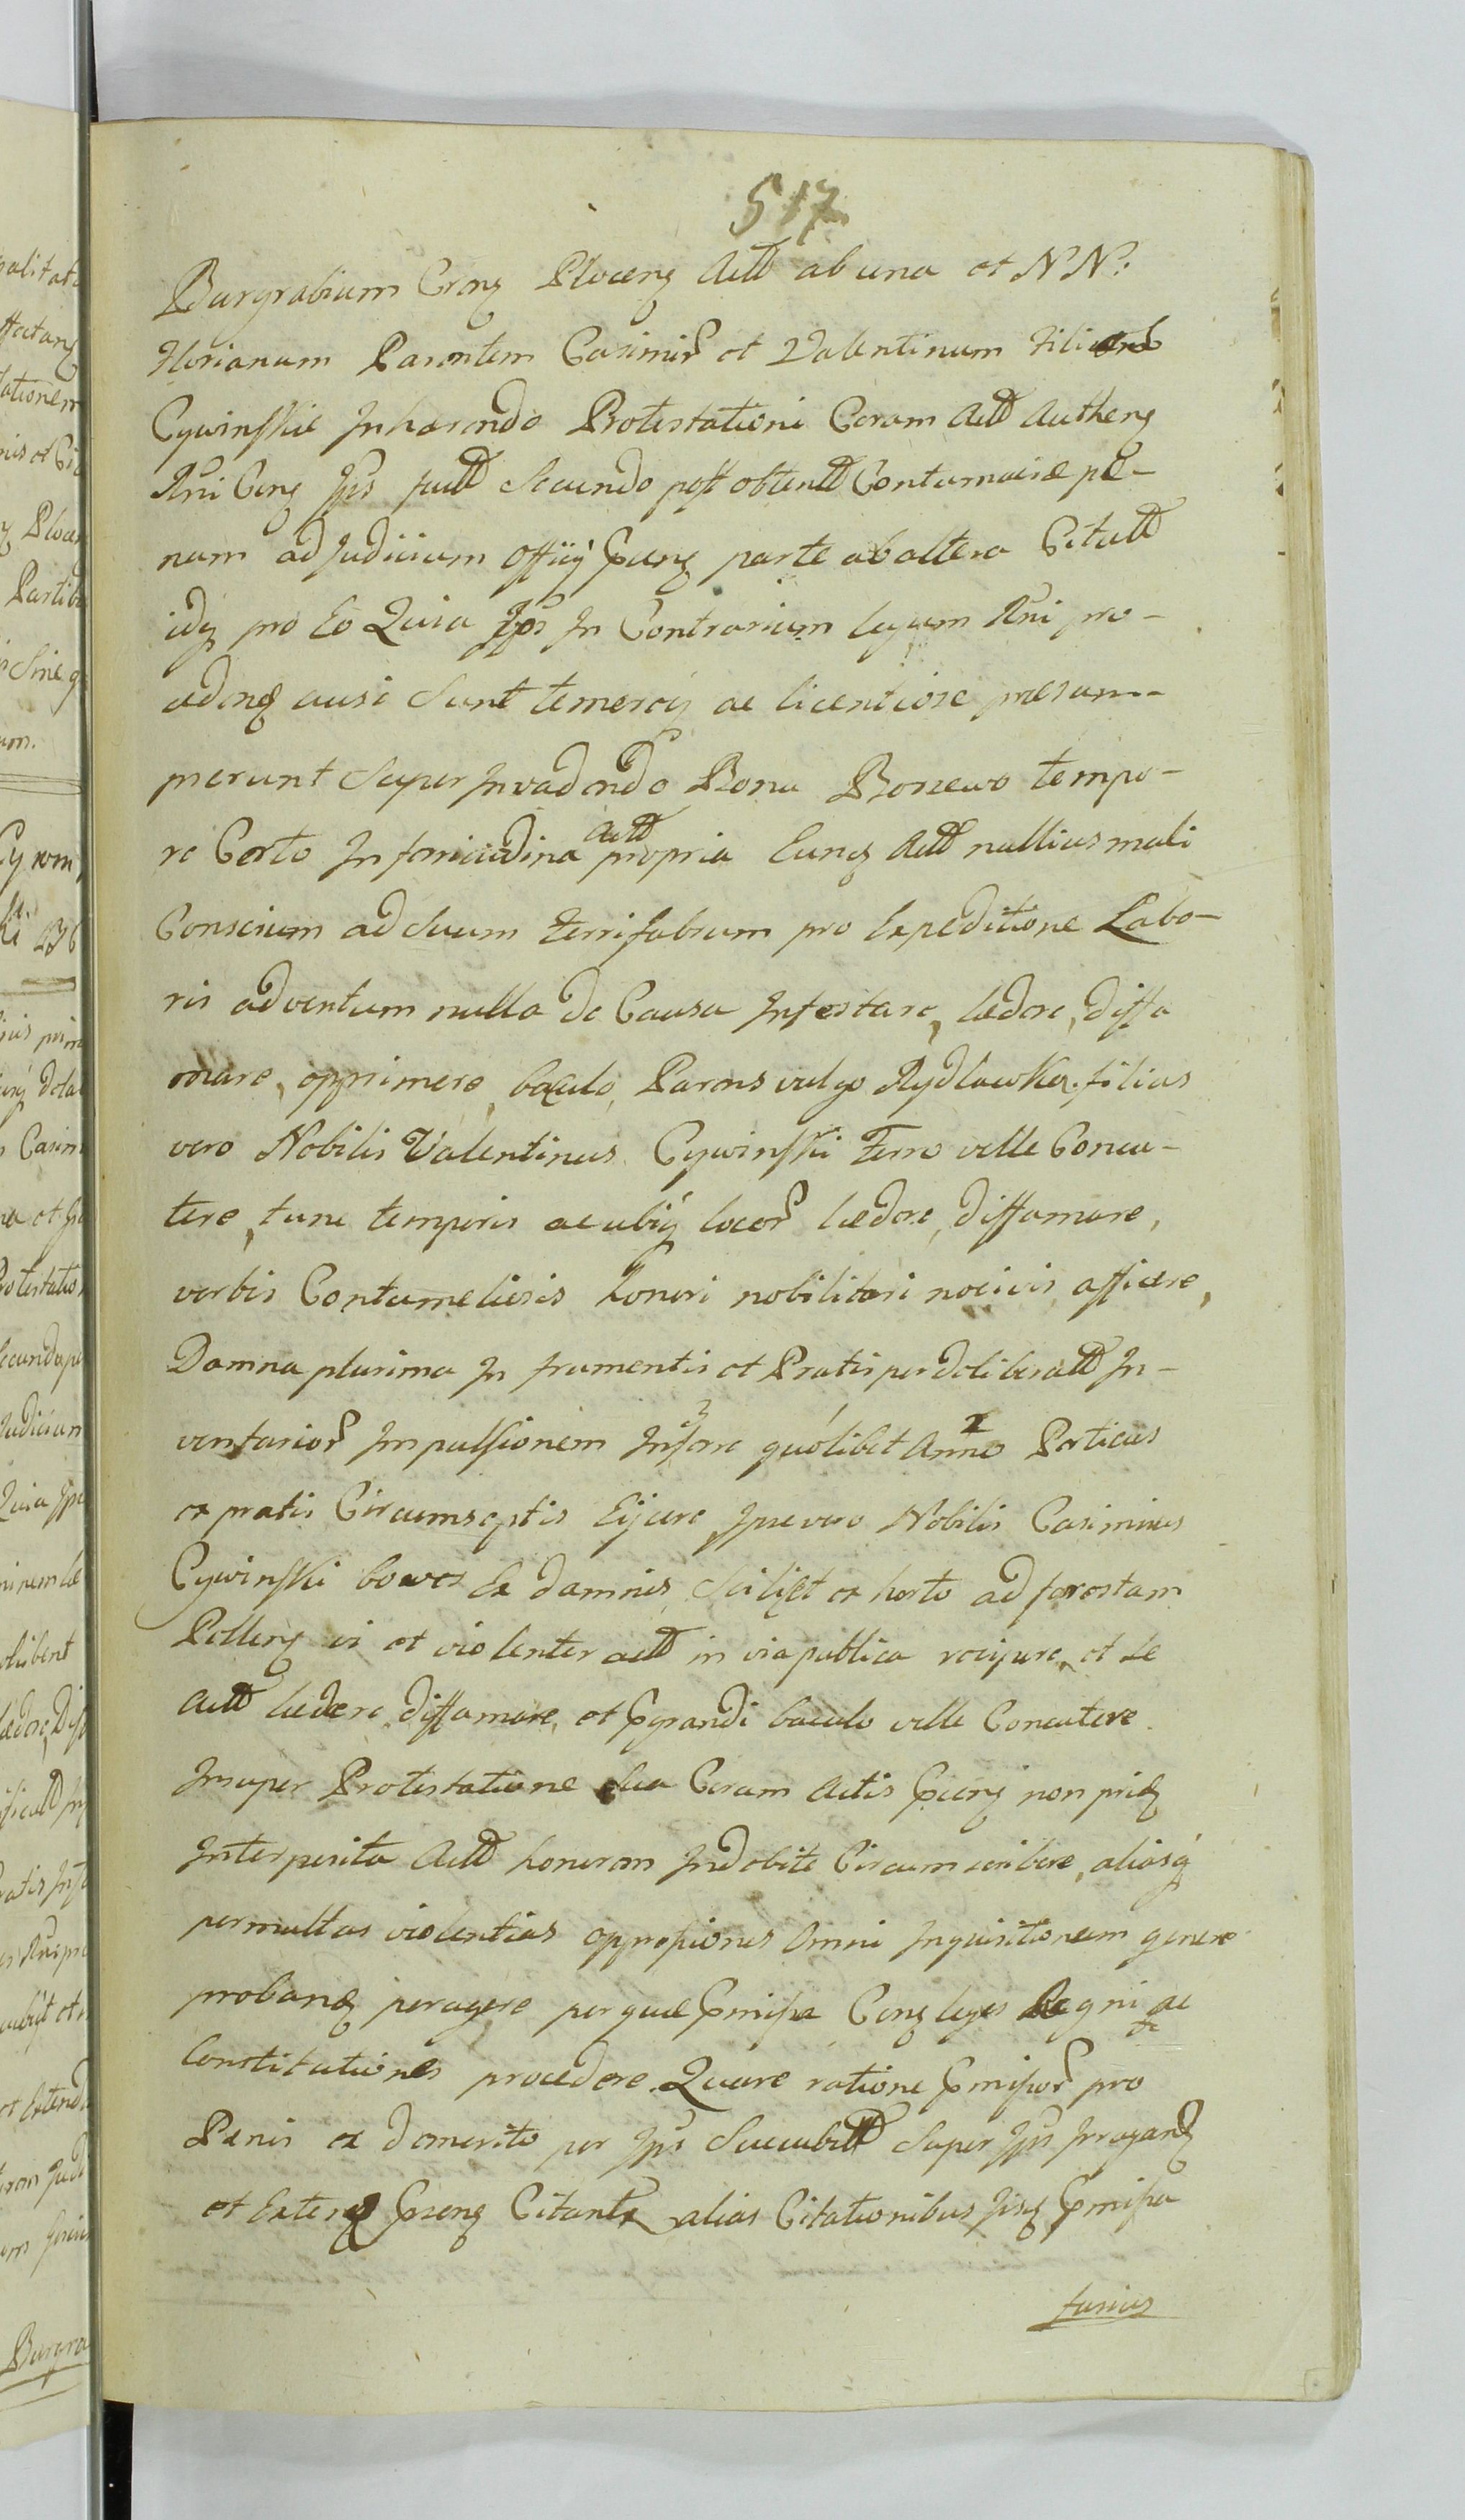 517
Burgrabium Creng Plocenȝ Actt ab una et NN:
Florianum Parentem Casimir et Valentinum Filios
Cywinskie Inhærendo Protestationi Coram Actt Authenȝ
Rñi Conȝ Ips factt Secundo post obtentt Contumaciæ pæ-
nam ad Judicium Offiij Pnng parte ab altera Citatt
idȝ pro Eo Quia Ips In Contrarium legum Rñi pro-
cedenȝ ausi sunt temerarij ac licentiose præsum-
pserunt Super Invadendo Bona Borzewo tempo-
re Certo In fornicidina Actt propria Eunȝ Actt nullius mali
Conscium ad Suum ferrifabrum pro Expeditione Labo-
ris adventum nulla de Causa Infestare, lædere, diffa
mare, opprimere, baculo, Parens vulgo Rydlawka. filius
vero Nobilis Valentinus Cywinski Ferro velle Concu-
tere, tunc temporis ac ubiq locor lædere, diffamare,
verbis Contumeliosis honori nobilitari nocivis afficere,
Damna plurima In frumentis et Pratis per deliberatt In-
ventarior Impulsionem Inferre quolibet Anno Perticas
ex pratis Circumseptis Eijcere Ipse vero Nobilis Casimirus
Cywinski boves Ex damnis, Scilicet ex horto ad forestam
Pollenȝ vi et violenter actt in via publica recipere, et Se
Actt lædere, diffamare, et Pgrandi baculo velle Concutere.
Insuper Protestatione sua Coram Actis Pnng non pridȝ
Interposita Actt honorem Indebite Circumscribere, aliasq
permultas violentias oppressiones Omni Inquisitionum genere
probanȝ peragere per quæ Pmissa Conȝ leges Regni ac
Constitutiones procedere. Quare ratione Pmissor pro
Pænis ex demerito per Ips Succubitt Super Ips Irroganȝ
et Extenȝ Psenȝ Citantr alias Citationibus Ijsȝ Pmissa
fusius